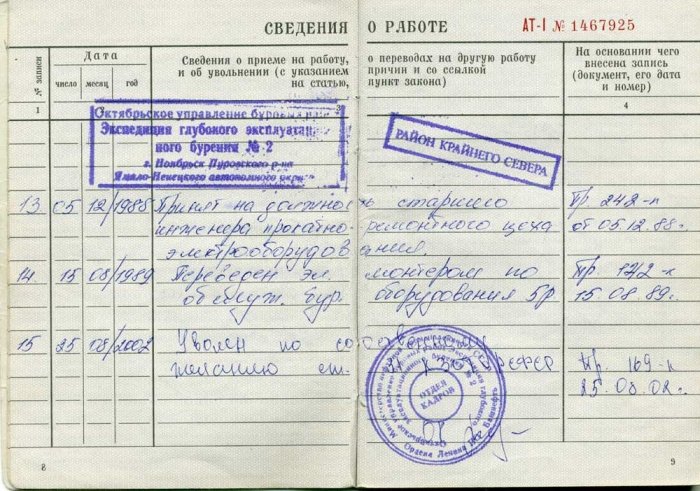 СВЕДЕНИЯ О РАБОТЕ
АТ-I № 1467925
№ записи
Дата
число месяц год
Сведения о приеме на работу, о переводах на другую работу
и об увольнении (с указанием причин и со ссылкой
на статью, пункт закона)
На основании чего
внесена запись
(документ, его дата
и номер)
1 3 4
Октябрьское управление буровых
Экспедиция глубокого эксплуатацион-
ного бурения № 2
г. Ноябрьск Пуровского р-на
Ямало-Ненецкого автономного округа
РАЙОН КРАЙНЕГО СЕВЕРА
13 05 12/1988 Принят на должность старшего Пр. 242-к
инженера прокатно-ремонтного цеха от 05.12.88г.
электрооборудования.
14 15 08/1989 Переведен эл. монтером по Пр. 172-к
обслуж. бур. оборудования 5р 15.08.89г.
15 25 08/2002 Уволен по
желанию ст. РФ Пр. 169-к
25.08.02г.
ОТДЕЛ
КАДРОВ
Ордена Ленина
8 9